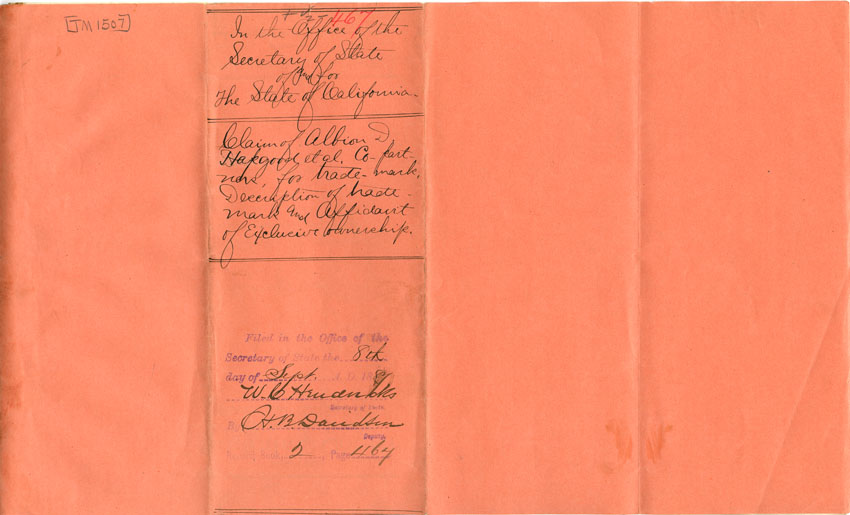 [TM 1507]
467
In the Office of the
Secretary of State
of and for
The State of California.
Claim of Albion D.
Hapgood et al. Co-part-
ners, for trade-mark,
Description of trade-
mark and Affidavit
of Exclusive ownership.
Filed in the Office of the
Secretary of State the 8th
day of Sept. A. D. 18
W. C. Hendricks
Secretary of State.
By H. B. Davidson
Deputy.
Record Book, 2, Page 467